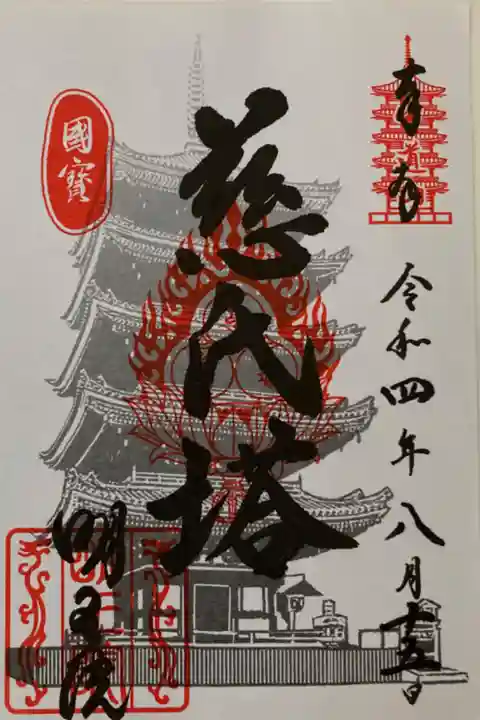 奉拝
令和四年八月十五日
慈氏塔
國寳
明王院